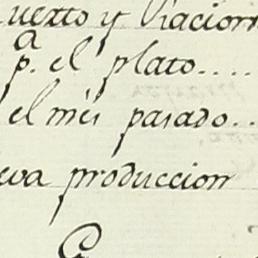 uerto y Viacion
pa. el plato....
el mes pasado..
eva produccion